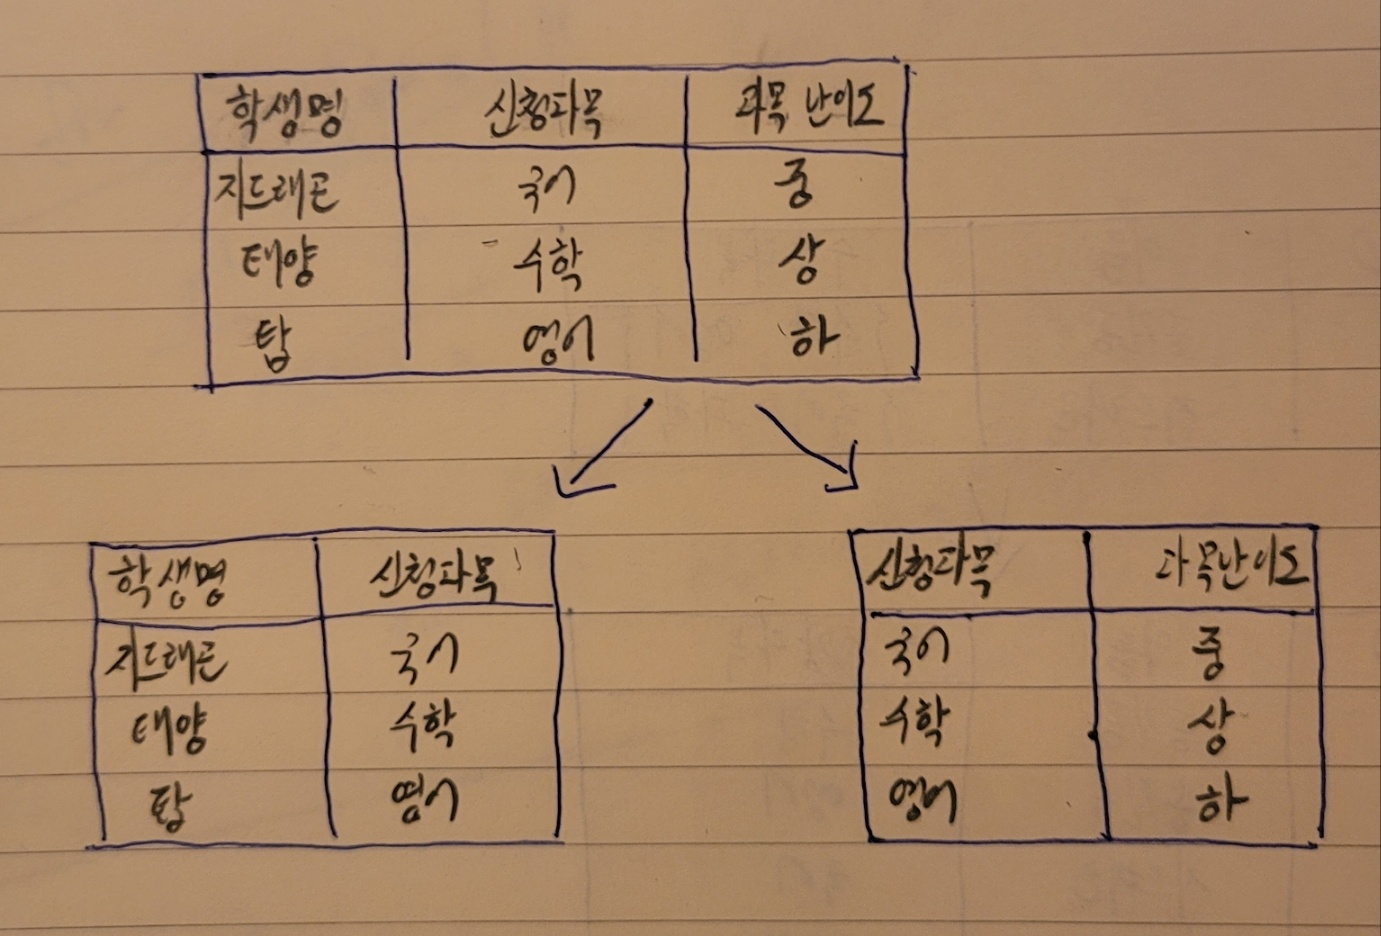 학생명 신청과목 과목 난이도
지드래곤 국어 중
태양 수학 상
탑 영어 하
학생명 신청과목
지드래곤 국어
태양 수학
탑 영어
신청과목 과목난이도
국어 중
수학 상
영어 하